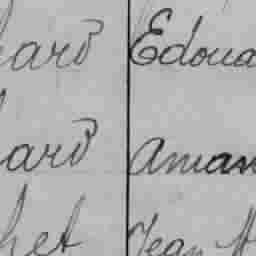 hard Edoua
hard Aman
het Jean M